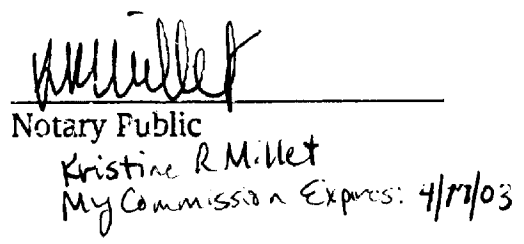 KRMillet
Notary Public
Kristine R Millet
My Commission Expires: